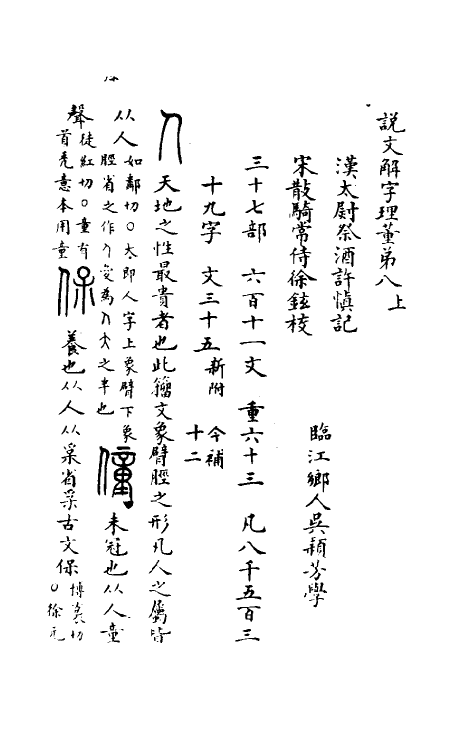 説文解字理董第八上
漢太尉祭酒許慎記
宋散騎常侍徐鉉校
臨江鄉人吳穎芳學
三十七部 六百十一文 重六十三 凡八千五百三
十九字 文三十五新附 今補十二
人 天地之性最貴者也此籀文象臂脛之形凡人之屬皆
从人如鄰切○大即人字上象臂下象脛省之作人變為人大之半也 僮 未冠也从人童
聲徒紅切○童有首禿意本用童 保 養也从人从𤓽省𤓽古文保博袌切○徐元